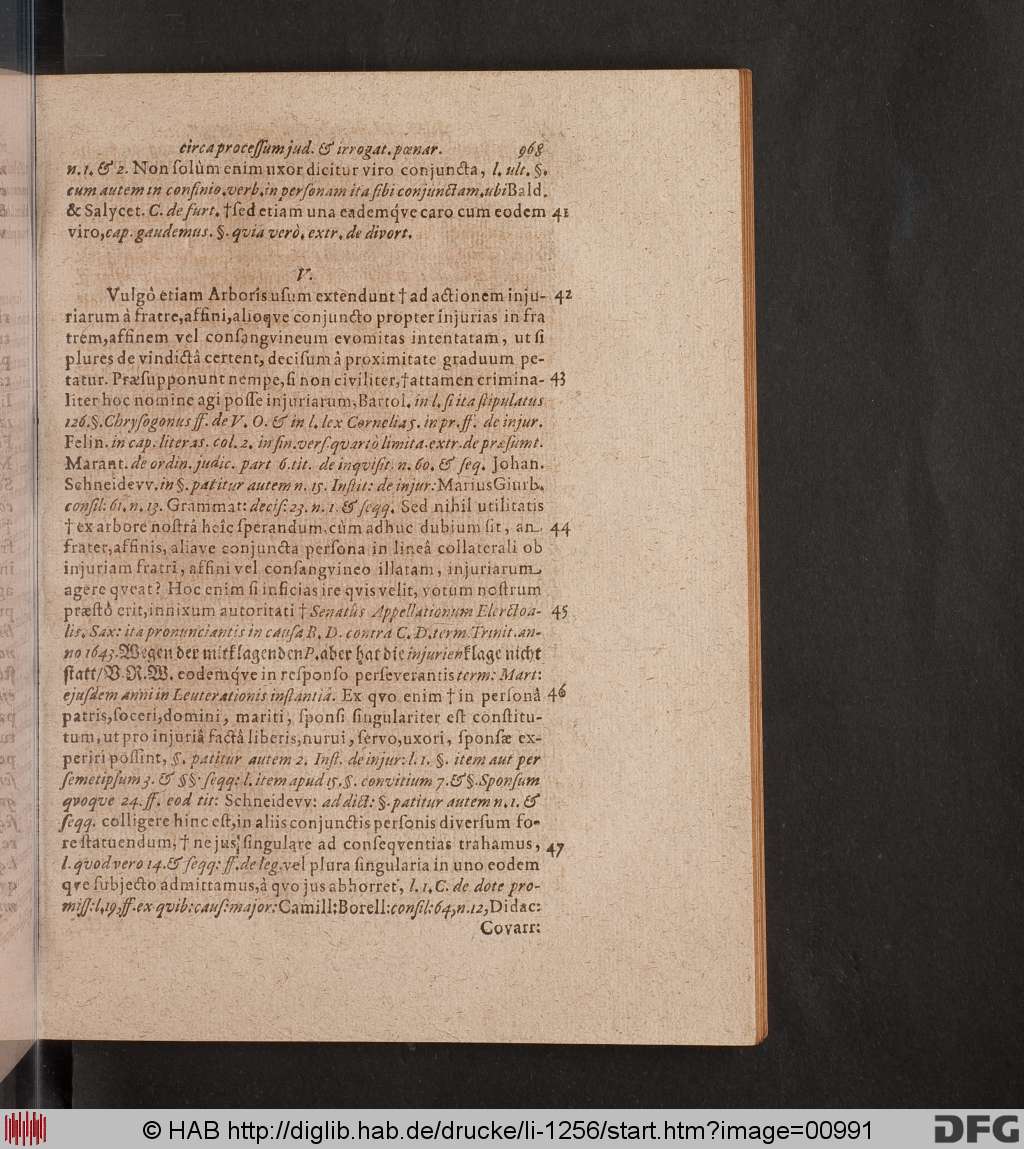 circa processum jud. & irrogat. pœnar. 968
n. 1. & 2. Non solùm enim uxor dicitur viro conjuncta, l. ult. §.
cum autem in confinio. verb. in personam ita sibi conjunctam. ubi Bald.
& Salycet. C. de furt. † sed etiam una eademq́ve caro cum eodem 41
viro, cap. gaudemus. §. qvia verò. extr. de divort.
V.
Vulgò etiam Arboris usum extendunt † ad actionem inju- 42
riarum à fratre, affini, alioqve conjuncto propter injurias in fra
trem, affinem vel consangvineum evomitas intentatam, ut si
plures de vindictâ certent, decisum â proximitate graduum pe-
tatur. Præsupponunt nempe, si non civiliter, † attamen crimina- 43
liter hoc nomine agi posse injuriarum, Bartol. in l. si ita stipulatus
126. §. Chrysogonus ff. de V. O. & in l. lex Cornelia 5. in pr. ff. de injur.
Felin. in cap. literas. col. 2. in fin. vers. quartò limita. extr. de præsumt.
Marant. de ordin. judic. part 6. tit. de inqvisit. n. 60. & seq. Johan.
Schneidevv. in §. patitur autem n. 15. Instit: de injur: Marius Giurb.
consil: 61. n. 13. Grammat: decis: 23. n. 1. & seqq. Sed nihil utilitatis
† ex arbore nostrâ heîc sperandum, cùm adhuc dubium sit, an 44
frater, affinis, aliave conjuncta persona in lineâ collaterali ob
injuriam fratri, affini vel consangvineo illatam, injuriarum
agere qveat? Hoc enim si inficias ire qvis velit, votum nostrum
præstò erit, innixum autoritati † Senatûs Appellationum Elerctoa- 45
lis. Sax: ita pronunciantis in causa B. D. contra C. D. term. Trinit. an-
no 1643. Wegen der mitklagenden P. aber hat die injurienklage nicht
statt/ V. R. W. eodemq́ve in responso perseverantis term: Mart:
ejusdem anni in Leuterationis instantiâ. Ex qvo enim † in personâ 46
patris, soceri, domini, mariti, sponsi singulariter est constitu-
tum, ut pro injuriâ factâ liberis, nurui, servo, uxori, sponsæ ex-
periri possint, §. patitur autem 2. Inst. de injur: l. 1. §. item aut per
semetipsum 3. & §§. seqq: l. item apud 15. §. convitium 7. & §. Sponsum
qvoqve 24. ff. eod tit: Schneidevv: ad dict: §. patitur autem n. 1. &
seqq. colligere hinc est, in aliis conjunctis personis diversum fo-
re statuendum, † ne jus singulare ad conseqventias trahamus, 47
l. qvod vero 14. & seqq: ff. de leg. vel plura singularia in uno eodem
qve subjecto admittamus, à qvo jus abhorret, l. 1. C. de dote pro-
miss: l. 19. ff. ex qvib: caus: major: Camill: Borell: consil: 64, n. 12, Didac:
Covarr:
© HAB http://diglib.hab.de/drucke/li-1256/start.htm?image=00991
DFG